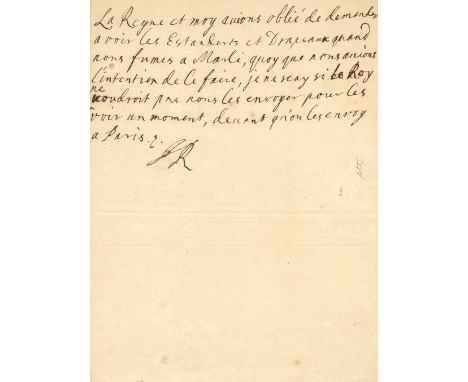 La Reyne et moy avions oblié de demander
a voir les Estanderts et Drapeaux quand
nous fumes a Marli, quoy que nous avions
l'intention de le faire, je ne scay si le Roy
ne voudroit pas nous les envoyer pour les
voir un moment, devant qu'on les envoy
a Paris.
JR